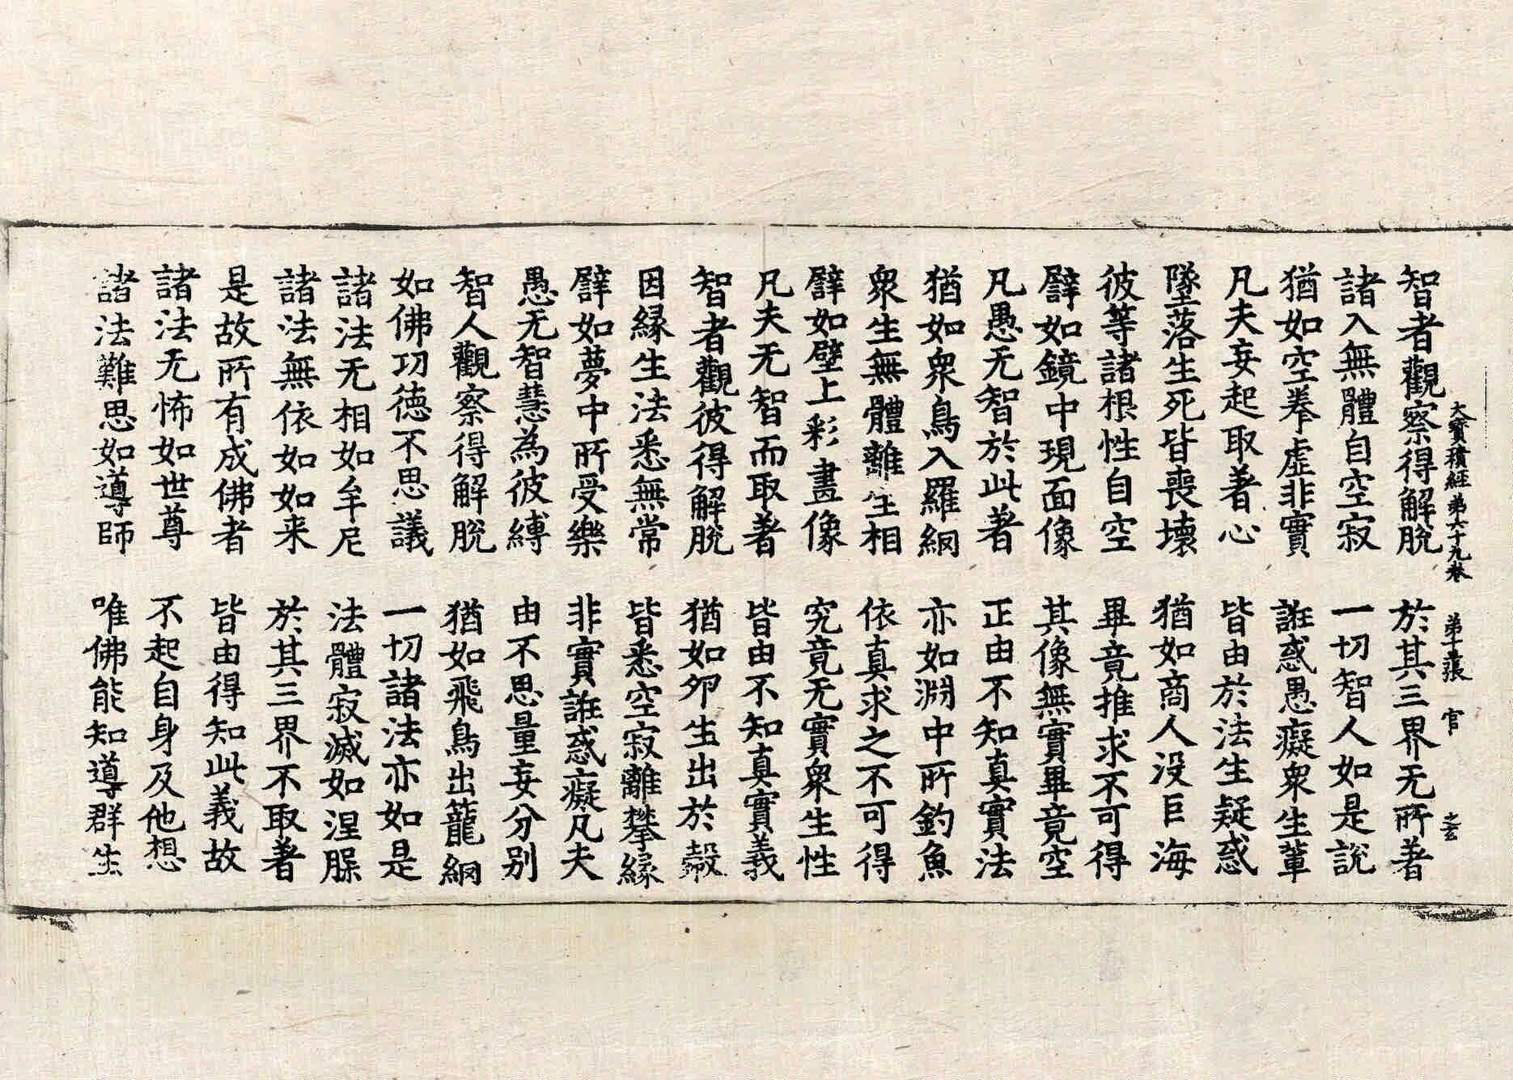 大寶積經第六十九卷 第十張 官 之玄
智者觀察得解脫 於其三界无所著
諸入無體自空寂 一切智人如是說
猶如空拳虛非實 誑惑愚癡衆生輩
凡夫妄起取著心 皆由於法生疑惑
墜落生死皆喪壞 猶如商人没巨海
彼等諸根性自空 畢竟推求不可得
譬如鏡中現面像 其像無實畢竟空
凡愚无智於此著 正由不知真實法
猶如衆鳥入羅網 亦如渊中所釣魚
衆生無體離生相 依真求之不可得
譬如壁上彩畫像 究竟无實衆生性
凡夫无智而取著 皆由不知真實義
智者觀彼得解脫 猶如夘生出於㲉
因緣生法悉無常 皆悉空寂離攀緣
譬如夢中所受樂 非實誑惑癡凡夫
愚无智慧為彼縛 由不思量妄分別
智人觀察得解脫 猶如飛鳥出籠網
如佛功徳不思議 一切諸法亦如是
諸法无相如牟尼 法體寂滅如涅槃
諸法無依如如来 於其三界不取著
是故所有成佛者 皆由得知此義故
諸法无怖如世尊 不起自身及他想
諸法難思如導師 唯佛能知導群生